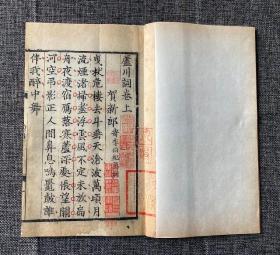 蘆川詞卷上
賀新郎 寄李伯紀丞相
曳杖危樓去斗垂天滄波萬頃月
流煙渚掃盡浮雲風不定未放扁
舟夜渡宿鴈落寒蘆深處悵望關
河空弔影正人間鼻息鳴鼉鼓誰
伴我醉中舞